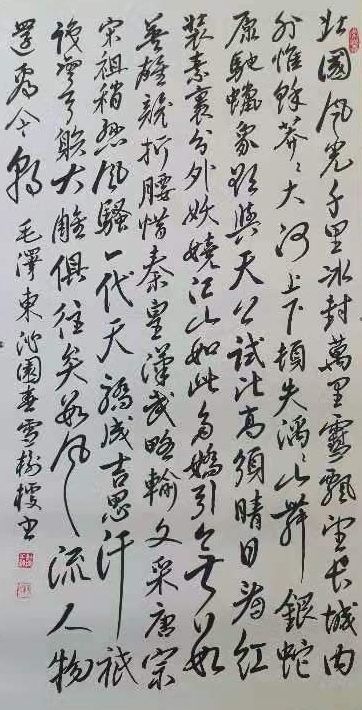 北國風光千里冰封萬里雪飄望長城内
外惟餘莽〻大河上下頓失滔〻山舞銀蛇
原馳蠟象欲與天公試比高須晴日看紅
裝素裹分外妖嬈江山如此多嬌引無數
英雄競折腰惜秦皇漢武略輸文采唐宗
宋祖稍遜風騷一代天驕成吉思汗祇
識彎弓射大雕俱往矣數風流人物
還看今朝 毛澤東沁園春雪 書